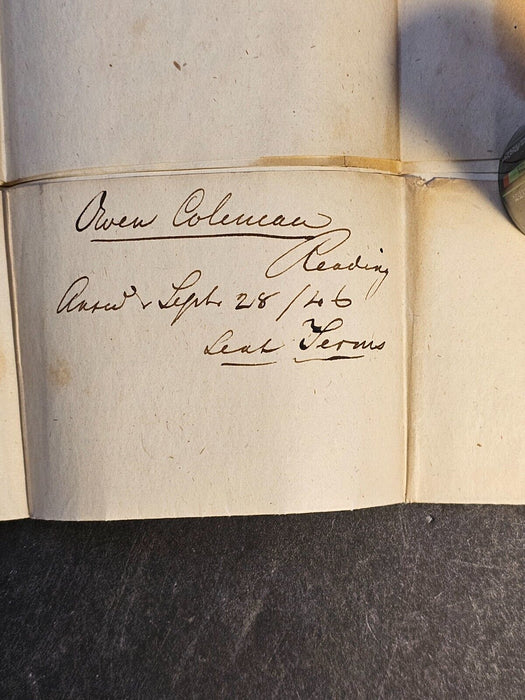 Owen Coleman
Reading
Answd. Sept. 28/46
Sent Terms